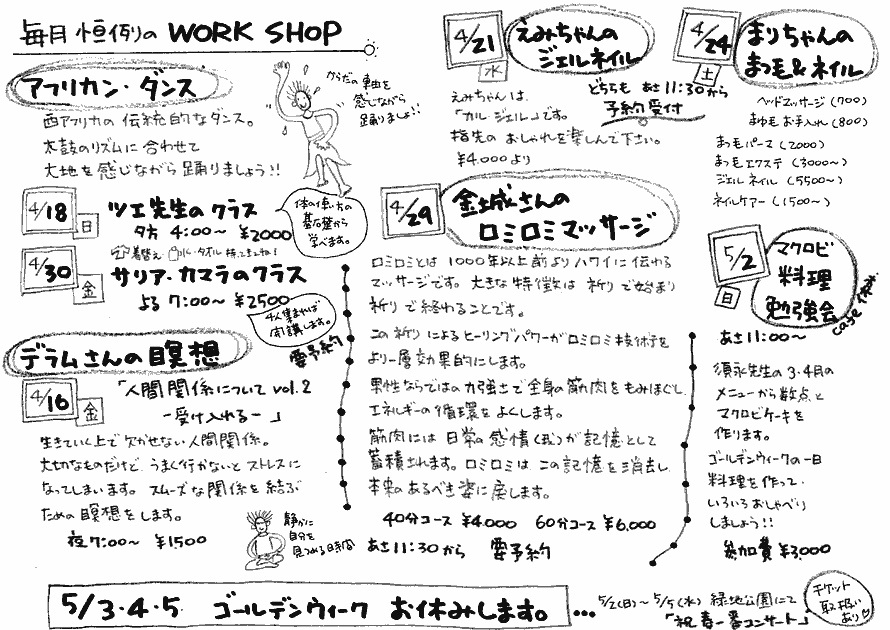 毎月恒例の WORK SHOP
アフリカン・ダンス
西アフリカの伝統的なダンス。
太鼓のリズムに合わせて
大地を感じながら踊りましょう!!
からだの軸を
感じながら
踊りましょ!!
4/18 日 ツエ先生のクラス
夕方 4:00〜 ¥2000
体の使い方の
基礎から
学べます。
着替え
水・タオル 持ってきてね!
4/30 金 サリア・カマラのクラス
よる 7:00〜 ¥2500
4人集まれば
開講します。
要予約
デラムさんの瞑想
4/16 金 「人間関係について vol.2
ー受け入れるー 」
生きていく上で欠かせない人間関係。
大切なものだけど、うまく行かないとストレスに
なってしまいます。スムーズな関係を結ぶ
ための瞑想をします。
夜 7:00〜 ¥1500
静かに
自分を
見つめる時間
4/21 水 えみちゃんの
ジェルネイル
えみちゃんは、
「カルジェル」です。
指先のおしゃれを楽しんで下さい。
¥4.000より
どちらも あさ11:30から
予約受付
4/24 土 まりちゃんの
まつ毛&ネイル
ヘッドマッサージ (700)
まゆ毛お手入れ (800)
まつ毛パーマ (2000)
まつ毛エクステ (3000〜)
ジェルネイル (5500〜)
ネイルケアー (1500〜)
4/29 金城さんの
ロミロミマッサージ
ロミロミとは 1000年以上前よりハワイに伝わる
マッサージです。大きな特徴は 祈りで始まり
祈りで終わることです。
この祈りによるヒーリングパワーがロミロミ技術を
より一層効果的にします。
男性ならではの力強さで全身の筋肉をもみほぐし
エネルギーの循環をよくします。
筋肉には 日常の感情(我)が記憶として
蓄積されます。ロミロミは この記憶を消去し
本来のあるべき姿に戻します。
40分コース ¥4.000 60分コース ¥6.000
あさ11:30から 要予約
5/2 日 マクロビ
料理
勉強会
あさ11:00〜
須永先生の3・4月の
メニューから数点と
マクロビケーキを
作ります。
ゴールデンウィークの一日
料理を作って、
いろいろおしゃべり
しましょう!!
参加費 ¥3,000
5/3・4・5 ゴールデンウィーク お休みします。
... 5/2(日)〜5/5(水) 緑地公園にて
「祝春一番コンサート」
チケット
取扱い
あり